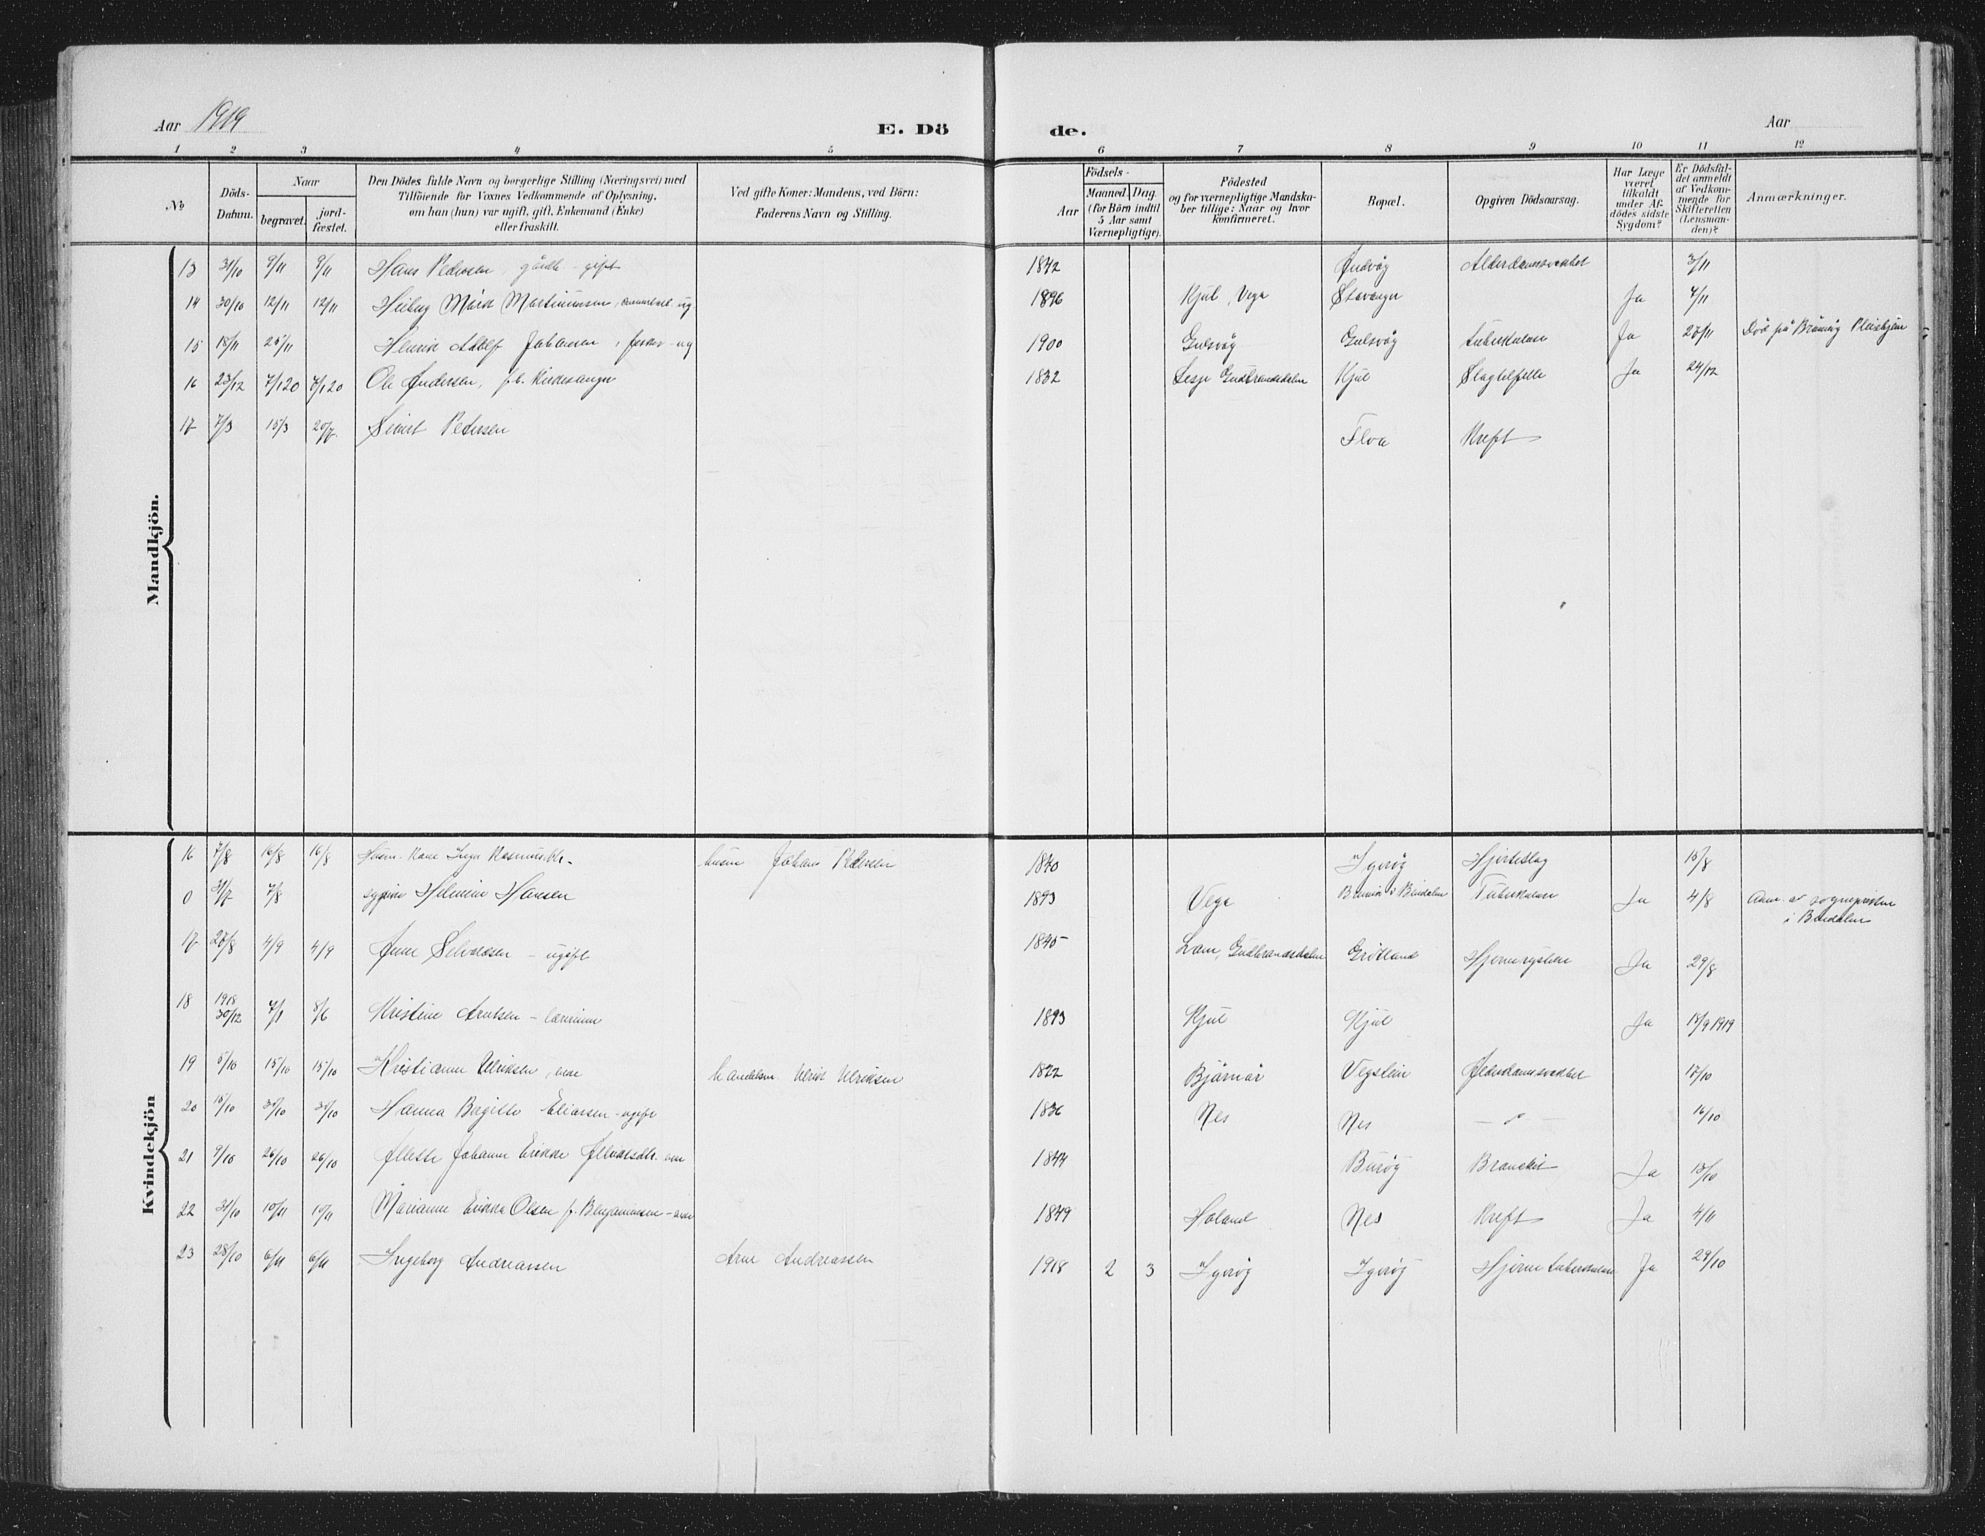 Aar 1919
E. Dö
de.
Aar
1 2 3 4 5 6 7 8 9 10 11 12
No
Döds-Datum.
Naar
begravet.
jord-fæstet.
Den Dödes fulde Navn og borgerlige Stilling (Næringsvei) med
Tilföiende for Voxnes Vedkommende af Oplysning,
om han (hun) var ugift, gift, Enkemand (Enke)
eller fraskilt.
Ved gifte Koner: Mandens, ved Börn:
Faderens Navn og Stilling.
Födsels-
Aar
Maaned Dag.
(for Börn indtil
5 Aar samt
Værnepligtige).
Födested
og for værnepligtige Mandska-
ber tillige: Naar og hvor
konfirmeret.
Bopæl.
Opgiven Dödsaarsag.
Har Læge
været
tilkaldt
under Af-
dödes sidste
Sygdom?
Er Dödsfal-
det anmeldt
af Vedkom-
mende for
Skifteretten
(Lensman-
den)?
Anmærkninger.
Mandkjön.
13 31/10 9/11 9/11 Hans Pedersen, gårdb - gift 1842 Alderdomssvakhet 3/11
14 30/10 12/11 12/11 Martinussen 1896 Kjul, Vega Stavanger Ja 7/11
15 15/11 25/11 Henrik Adolf Johansen, fisker - ug 1900 Gulsvåg Gulsvåg Tuberkulose Ja 25/11 Död på Brönnöy Pleiehjem
16 23/12 7/1 20 7/1 20 Ole Andersen, 1832 Lesje Gudbrandsdalen Kjul Slagtilfelle Ja 24/12
17 7/3 15/3 20/7 Sivert Pedersen Floa Kreft
Kvindekjön
16 7/8 16/8 16/8 Husm. kone Inga Rasmusdtr. husm Johan Pedersen 1840 Igeröy Hjerteslag 15/8
0 31/7 7/8 Hansen 1893 Vega Bindalen Tuberkulose Ja 4/8 Anm. av sognepresten
i Bindalen
17 27/8 4/9 4/9 Anne - ugift 1845 Lom, Gudbrandsdalen Grötland Hjernerystelse Ja 29/8
18 1918
30/12 7/1 8/6 Kristine Arntsen - lærerinne 1893 Kjul Kjul Ja 15/9 1919
19 5/10 15/10 15/10 Kristianne Ulriksen, enke handelsm. Ulrik Ulriksen 1822 Vegstein Alderdomssvakhet 17/10
20 15/10 31/10 31/10 Hanna Bergitte Eliassen - ugift 1836 Nes Nes — " — 16/10
21 9/10 26/10 26/10 Johanne Erikke enke 1844 Buröy Bronchit Ja 13/10
22 31/10 10/11 10/11 Marianne Erikka Olsen f. Benjaminsen - enke 1849 Holand Nes Kreft Ja 4/11
23 28/10 6/11 6/11 Ingeborg Andreassen Arne Andreassen 1918 2 3 Igeröy Igeröy Hjerne tuberkulose Ja 29/10